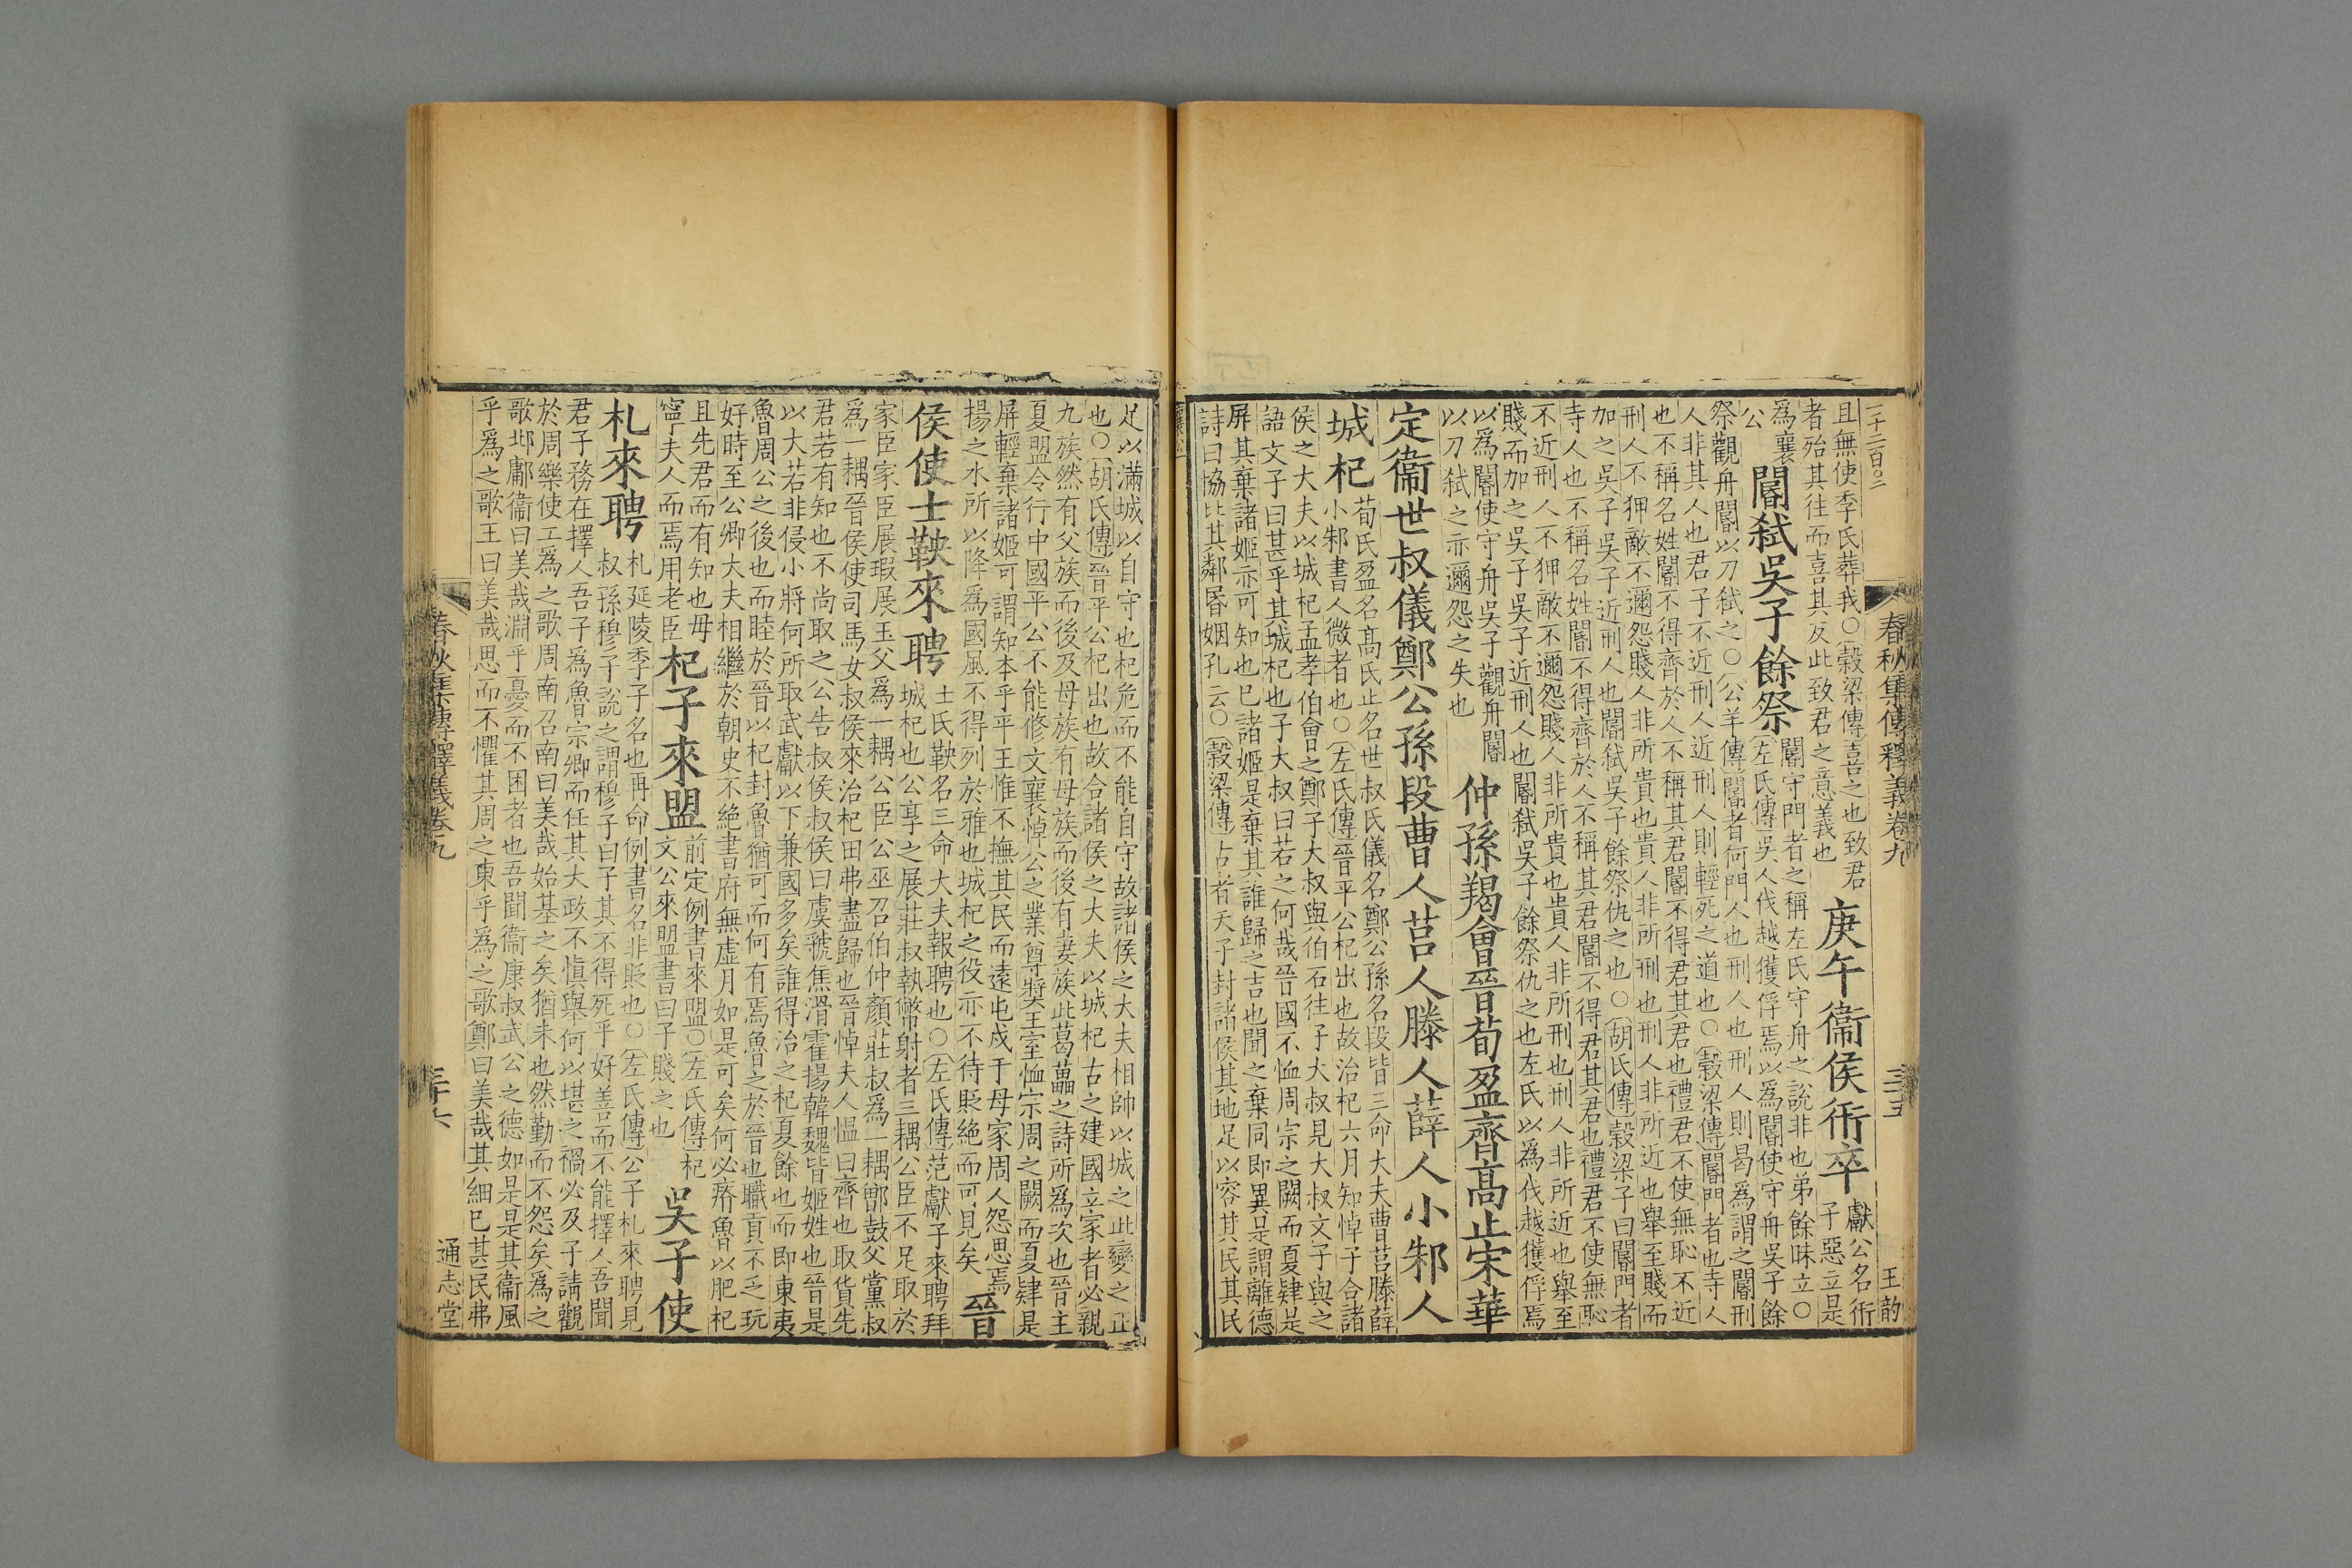 一千二百〇二
春秋集傳釋義卷九
三十五
王韵
且無使季氏葬我○穀梁傳喜之也致君
者殆其往而喜其反此致君之意義也
庚午衞侯衎卒
獻公名衎
子惡立是
為襄
公
閽弒吳子餘祭
閽守門者之稱左氏守舟之說非也弟餘昧立○
左氏傳吳人伐越獲俘焉以為閽使守舟吳子餘
祭觀舟閽以刀弒之○公羊傳閽者何門人也刑人也刑人則曷為謂之閽刑
人非其人也君子不近刑人近刑人則輕死之道也○穀梁傳閽門者也寺人
也不稱名姓閽不得齊於人不稱其君閽不得君其君也禮君不使無恥不近
刑人不狎敵不邇怨賤人非所貴也貴人非所刑也刑人非所近也舉至賤而
加之吳子吳子近刑人也閽弒吳子餘祭仇之也○胡氏傳穀梁子曰閽門者
寺人也不稱名姓閽不得齊於人不稱其君閽不得君其君也禮君不使無恥
不近刑人不狎敵不邇怨賤人非所貴也貴人非所刑也刑人非所近也舉至
賤而加之吳子吳子近刑人也閽弒吳子餘祭仇之也左氏以為伐越獲俘焉
以為閽使守舟吳子觀舟閽
以刀弒之亦邇怨之失也
仲孫羯會晉荀盈齊高止宋華
定衞世叔儀鄭公孫段曹人莒人滕人薛人小邾人
城杞
荀氏盈名高氏止名世叔氏儀名鄭公孫名段皆三命大夫曹莒滕薛
小邾書人微者也○左氏傳晉平公杞出也故治杞六月知悼子合諸
侯之大夫以城杞孟孝伯會之鄭子大叔與伯石往子大叔見大叔文子與之
語文子曰甚乎其城杞也子大叔曰若之何哉晉國不恤周宗之闕而夏肄是
屏其棄諸姬亦可知也已諸姬是棄其誰歸之吉也聞之棄同即異是謂離德
詩曰協比其鄰昏姻孔云○穀梁傳古者天子封諸侯其地足以容其民其民
足以滿城以自守也杞危而不能自守故諸侯之大夫相帥以城之此變之正
也○胡氏傳晉平公杞出也故合諸侯之大夫以城杞古之建國立家者必親
九族然有父族而後及母族有母族而後有妻族此葛藟之詩所為次也晉主
夏盟令行中國平公不能修文襄悼公之業尊獎王室恤宗周之闕而夏肄是
屏輕棄諸姬可謂知本乎平王惟不撫其民而遠屯戍于母家周人怨思焉
揚之水所以降為國風不得列於雅也城杞之役亦不待貶絶而可見矣
晉
侯使士鞅來聘
士氏鞅名三命大夫報聘也○左氏傳范獻子來聘拜
城杞也公享之展莊叔執幣射者三耦公臣不足取於
家臣家臣展瑕展玉父為一耦公臣公巫召伯仲顏莊叔為一耦鄫鼓父黨叔
為一耦晉侯使司馬女叔侯來治杞田弗盡歸也晉悼夫人愠曰齊也取貨先
君若有知也不尚取之公告叔侯叔侯曰虞虢焦滑霍揚韓魏皆姬姓也晉是
以大若非侵小將何所取武獻以下兼國多矣誰得治之杞夏餘也而即東夷
魯周公之後也而睦於晉以杞封魯猶可而何有焉魯之於晉也職貢不乏玩
好時至公卿大夫相繼於朝史不絶書府無虛月如是可矣何必瘠魯以肥杞
且先君而有知也毋
寧夫人而焉用老臣
杞子來盟
前定例書來盟○左氏傳杞
文公來盟書曰子賤之也
吳子使
札來聘
札延陵季子名也再命例書名非貶也○左氏傳公子札來聘見
叔孫穆子說之謂穆子曰子其不得死乎好善而不能擇人吾聞
君子務在擇人吾子為魯宗卿而任其大政不慎舉何以堪之禍必及子請觀
於周樂使工為之歌周南召南曰美哉始基之矣猶未也然勤而不怨矣為之
歌邶鄘衞曰美哉淵乎憂而不困者也吾聞衞康叔武公之德如是是其衞風
乎為之歌王曰美哉思而不懼其周之東乎為之歌鄭曰美哉其細已甚民弗
春秋集傳釋義卷九
三十六
通志堂